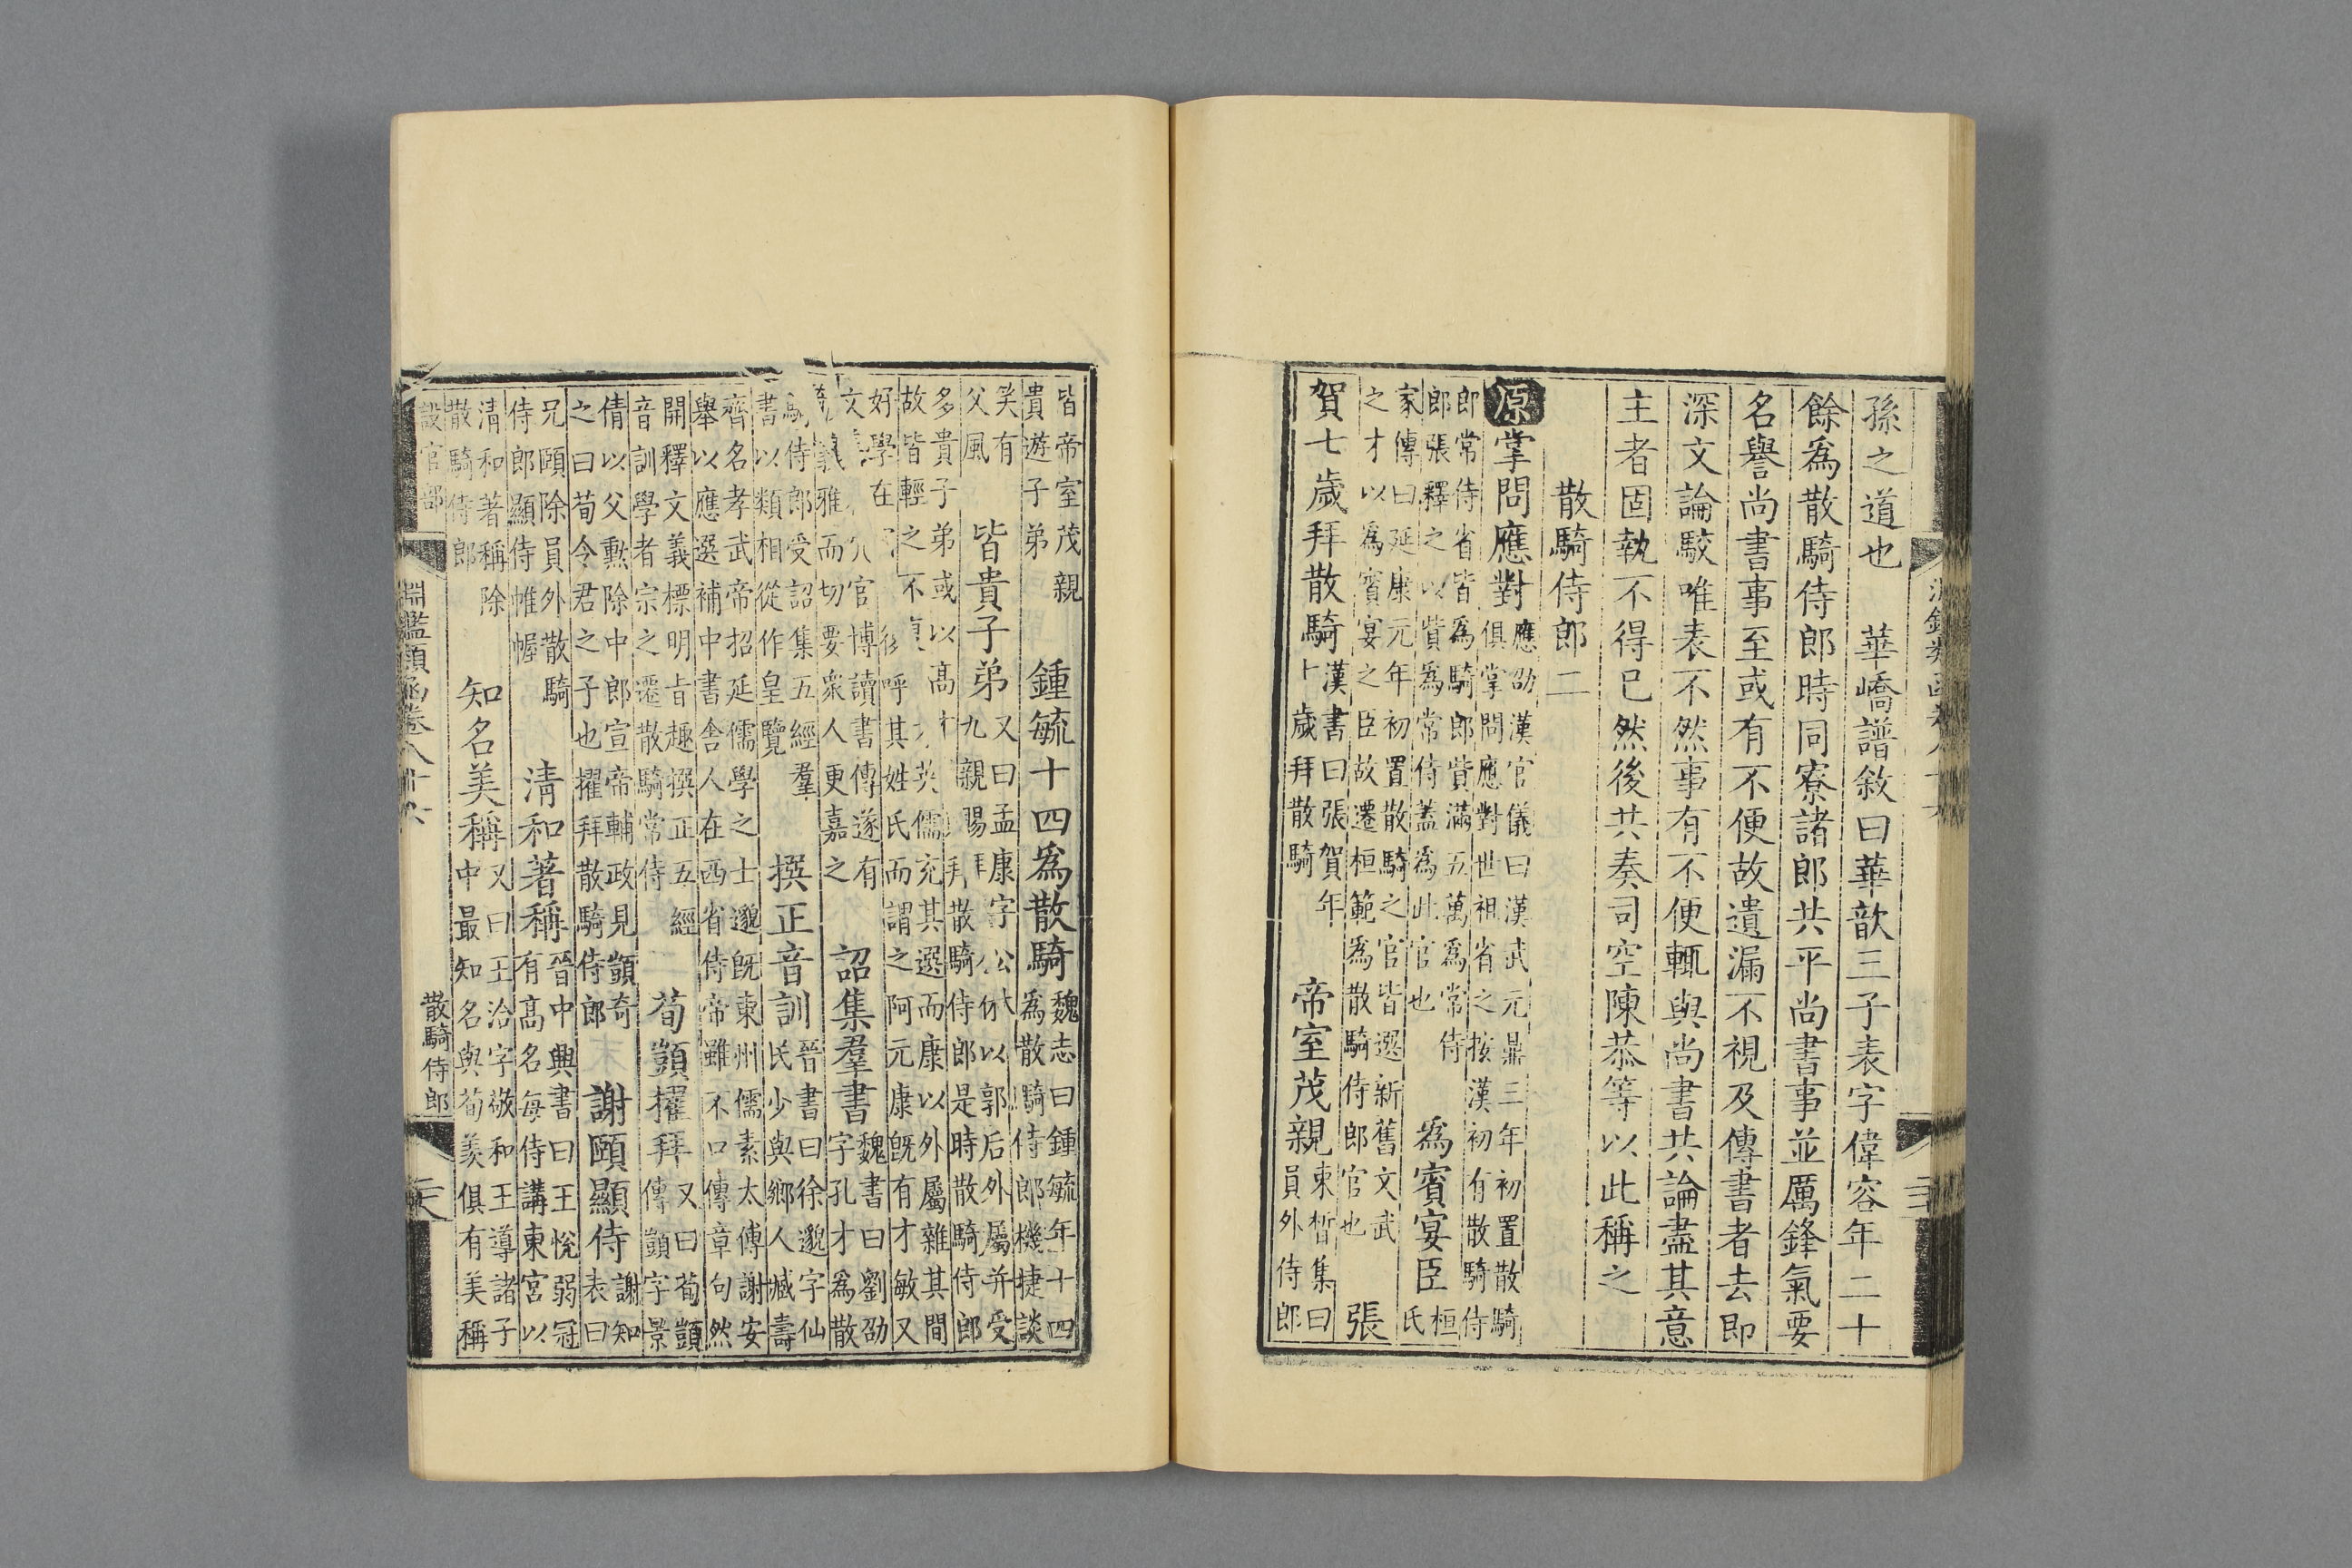 孫之道也　華嶠譜敘曰華歆三子表字偉容年二十
餘爲散騎侍郎時同寮諸郎共平尚書事並厲鋒氣要
名譽尚書事至或有不便故遺漏不視及傳書者去即
深文論駮唯表不然事有不便輒與尚書共論盡其意
主者固執不得已然後共奏司空陳恭等以此稱之
散騎侍郎二
原掌問應對應劭漢官儀曰漢武元鼎三年初置散騎
俱掌問應對世祖省之按漢初有散騎侍
郎常侍省皆爲騎郎貲滿五萬爲常侍
郎張釋之以貲爲常侍蓋爲此官也
爲賓宴臣桓
氏
家傳曰延康元年初置散騎之官皆選新舊文武
之才以爲賓宴之臣故遷桓範爲散騎侍郎官也
張
賀七歲拜散騎漢書曰張賀年
七歲拜散騎
帝室茂親束晳集曰
員外侍郎
皆帝室茂親
貴遊子弟
鍾毓十四爲散騎魏志曰鍾毓年十四
爲散騎侍郎機捷談
笑有
父風
皆貴子弟又曰孟康字公休以郭后外屬并受
九親賜拜散騎侍郎是時散騎侍郎
多貴子弟或以高才英儒充其選而康以外屬雜其間
故皆輕之不呼其姓氏而謂之阿元康旣有才敏又
好學在官博讀書傳遂有
文義雅而切要衆人更嘉之
詔集羣書魏書曰劉劭
字孔才爲散
騎侍郎受詔集五經羣
書以類相從作皇覽
撰正音訓晉書曰徐邈字仙
民少與鄉人臧壽
齊名孝武帝招延儒學之士邈旣東州儒素太傅謝安
舉以應選補中書舍人在西省侍帝雖不口傳章句然
開釋文義標明旨趣撰正五經
音訓學者宗之遷散騎常侍
荀顗擢拜又曰荀顗
傳顗字景
倩以父勲除中郎宣帝輔政見顗奇
之曰荀令君之子也擢拜散騎侍郎
謝頤顯侍謝知
表曰
兄頤除員外散騎
侍郎顯侍帷幄
清和著稱晉中興書曰王悅弱冠
有高名每侍講東宮以
清和著稱除
散騎侍郎
知名美稱又曰王洽字敬和王導諸子
中最知名與荀羨俱有美稱
設官部
淵鑑類函卷八十六
散騎侍郎